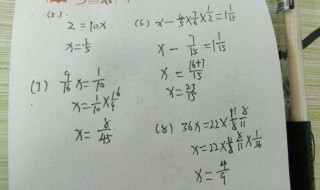 (5).
2=10x
x=1/5
(6) x-4/5×7/12×1/2=1 1/15
x-7/15=1 1/15
x=16+7/15
x=23/15
(7) 9/16x=1/10
x=1/10×16/9
x=8/45
(8) 36x=22×8/11
x=22×8/11×1/36
x=4/9